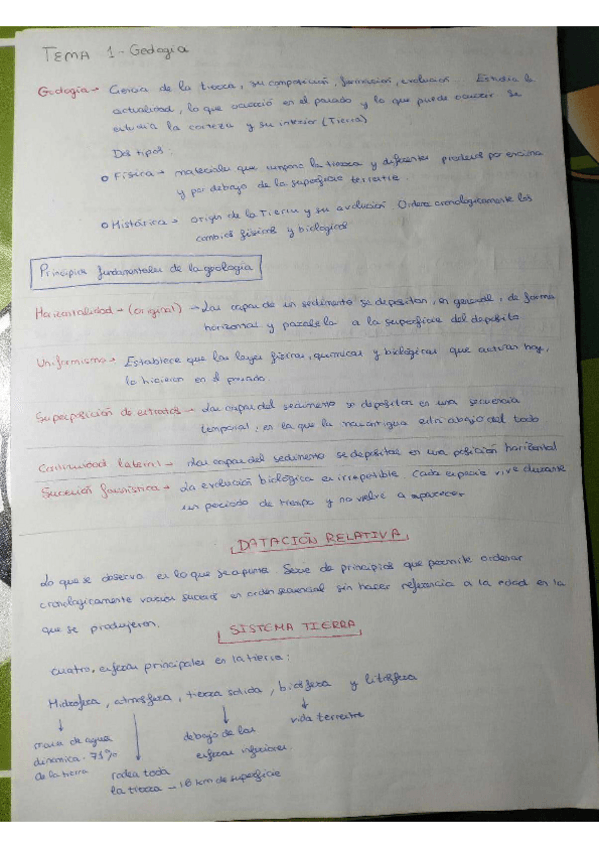 TEMA 1 - Geología
Geología → Ciencia de la tierra, su composición, formación, evolución... Estudia la
actualidad, lo que ocurrió en el pasado y lo que puede ocurrir se
estudia la corteza y su interior (Tierra)
Dos tipos:
Física → materiales que compone la tierra y diferentes procesos por encima
y por debajo de la superficie terrestre.
Histórica → origen de la Tierra y su evolución Ordena cronológicamente los
cambios físicos y biológicos
Principios fundamentales de la geología
Horizontalidad → (original) → Las capas de un sedimento se depositan, en general, de forma
horizontal y paralela a la superficie del depósito.
Uniformismo → Establece que las leyes físicas, químicas y biológicas que actúan hoy,
lo hicieron en el pasado.
Superposición de estratos → Las capas del sedimento se depositan en una secuencia
temporal, en la que la más antigua está abajo del todo
Continuidad lateral → Las capas del sedimento se depositan en una posición horizontal
Sucesión faunística → La evolución biológica es irrepetible. Cada especie vive durante
un periodo de tiempo y no vuelve a aparecer
DATACIÓN RELATIVA
Lo que se observa es lo que se apunta. Serie de principios que permite ordenar
cronológicamente varios sucesos en orden secuencial sin hacer referencia a la edad en la
que se produjeron.
SISTEMA TIERRA
Cuatro esferas principales en la tierra:
Hidrosfera, atmósfera, tierra sólida, biosfera y litosfera
masa de agua
dinámica - 71%
de la tierra
rodea toda
la tierra - 16 km de superficie
debajo de las
esferas inferiores.
vida terrestre